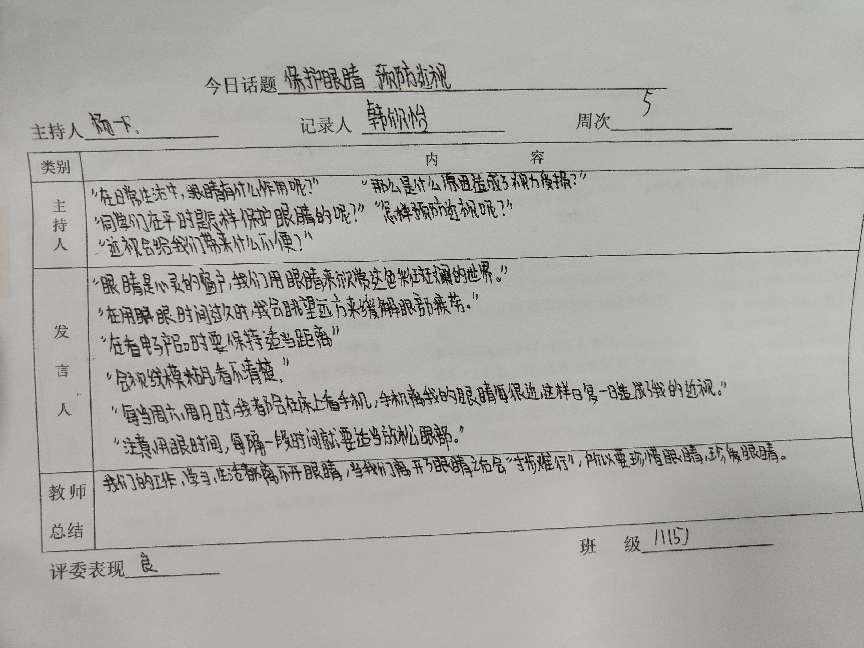 今日话题 保护眼睛 预防近视
主持人 杨卡. 记录人 韩钦怡 周次 5
类别 内 容
主持人
"在日常生活中,眼睛有什么作用呢?" "那么是什么原因造成了视力受损?"
"同学们在平时是怎样保护眼睛的呢?" "怎样预防近视呢?"
"近视会给我们带来什么不便?"
发言人
"眼睛是心灵的窗户,我们用眼睛来欣赏这色彩斑斓的世界。"
"在用眼时间过久时,我会眺望远方来缓解眼部疲劳。"
"在看电子产品时要保持适当距离"
"会视线模糊,看不清楚."
"每当周六、周日时,我都会在床上看手机,手机离我的眼睛每很近,这样日复一日造成了我的近视。"
"注意用眼时间,每隔一段时间就要适当放松眼部。"
教师总结
我们的工作、学习、生活都离不开眼睛,当我们离开了眼睛之后会"寸步难行",所以要珍惜眼睛,珍爱眼睛。
评委表现 良 班 级 11(5)